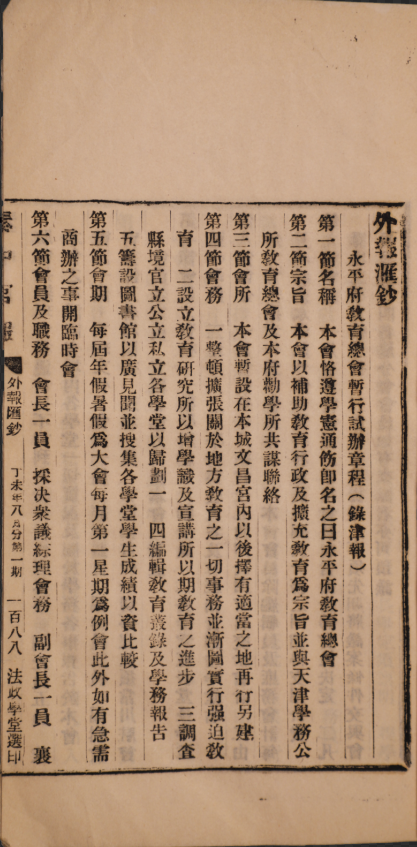 外報滙鈔
永平府教育總會暫行試辦章程(錄津報)
第一節名稱　本會恪遵學憲通飭卽名之曰永平府教育總會
第二節宗旨　本會以補助教育行政及擴充教育爲宗旨並與天津學務公
所教育總會及本府勸學所共謀聯絡
第三節會所　本會暫設在本城文昌宮內以後擇有適當之地再行另建
第四節會務　一整頓擴張關於地方教育之一切事務並漸圖實行强迫教
育　二設立教育硏究所以增學識及宣講所以期教育之進步　三調查
縣境官立公立私立各學堂以歸劃一　四編輯教育叢錄及學務報告
五籌設圖書館以廣見聞並搜集各學堂學生成績以資比較
第五節會期　每屆年假暑假爲大會每月第一星期爲例會此外如有急需
商辦之事開臨時會
第六節會員及職務　會長一員　採決衆議綜理會務　副會長一員　襄
官報
外報滙鈔
丁未年八月分第一期
一百八八
法政學堂選印